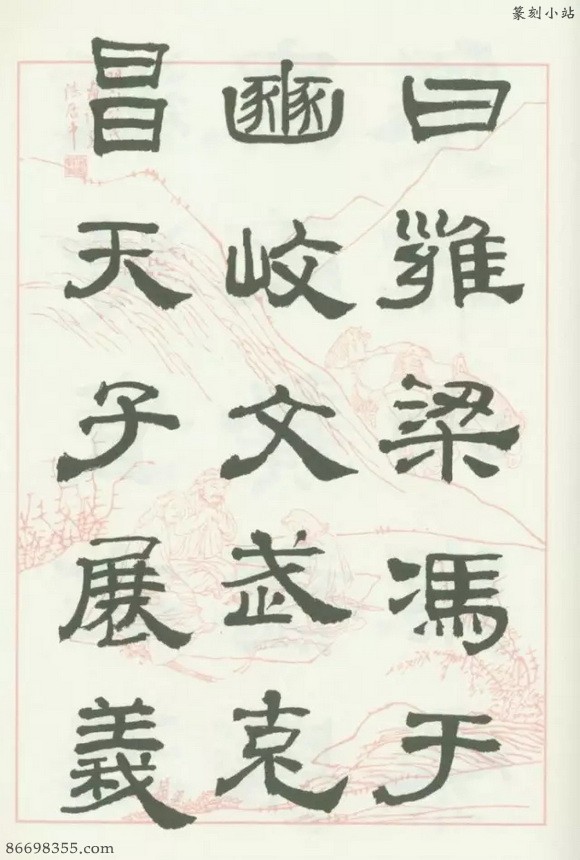 篆刻小站
曰雍梁馮于
豳岐文武克
昌天子展義
86698355.com